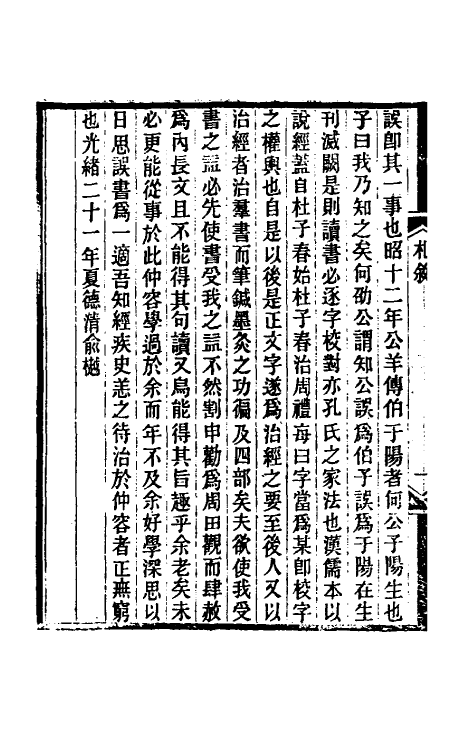 札敘
誤卽其一事也昭十二年公羊傳伯于陽者何公子陽生也
子曰我乃知之矣何劭公謂知公誤爲伯子誤爲于陽在生
刊滅闕是則讀書必逐字校對亦孔氏之家法也漢儒本以
說經蓋自杜子春始杜子春治周禮每曰字當爲某卽校字
之權輿也自是以後是正文字遂爲治經之要至後人又以
治經者治羣書而筆鍼墨灸之功徧及四部矣夫欲使我受
書之益必先使書受我之益不然割申勸爲周田觀而肆赦
爲內長文且不能得其句讀又烏能得其旨趣乎余老矣未
必更能從事於此仲容學過於余而年不及余好學深思以
日思誤書爲一適吾知經疾史恙之待治於仲容者正無窮
也光緒二十一年夏德清俞樾